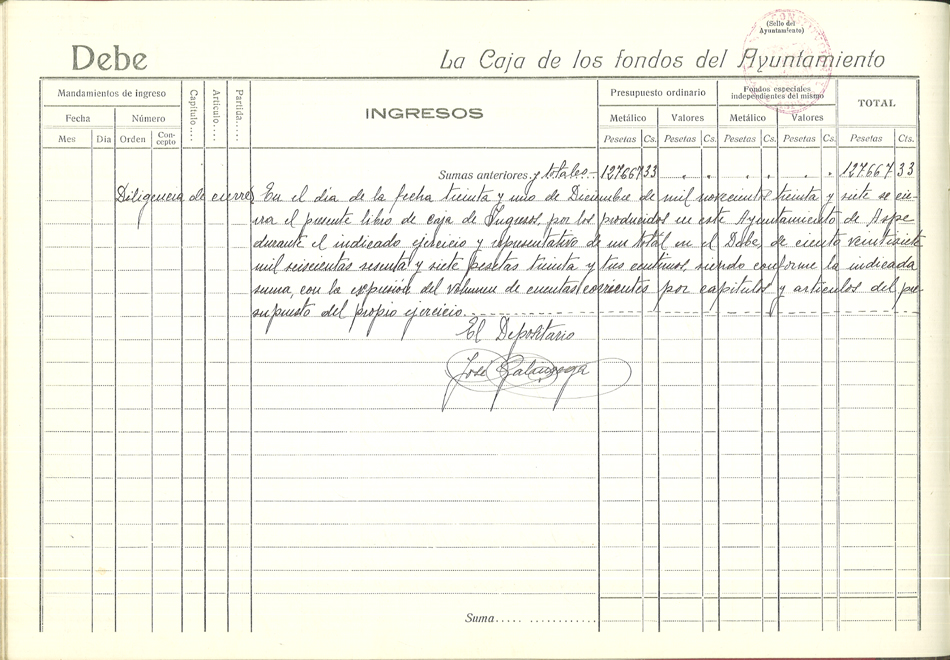 (Sello del
Ayuntamiento)
Debe
La Caja de los fondos del Ayuntamiento
Mandamientos de ingreso
Fecha
Número
Mes
Día
Orden
Con-
cepto
Capítulo....
Artículo....
Partida....
INGRESOS
Presupuesto ordinario
Metálico
Valores
Fondos especiales
independientes del mismo
Metálico
Valores
TOTAL
Pesetas Cs. Pesetas Cs. Pesetas Cs. Pesetas Cs. Pesetas Cts.
Sumas anteriores y totales... 127667 33 127667 33
Diligencia de cierre En el día de la fecha treinta y uno de Diciembre de mil novecientos treinta y siete se cie-
rra el presente libro de caja de Ingresos, por los producidos en este Ayuntamiento de Aspe
durante el indicado ejercicio y representativo de un total en el Debe, de ciento veintisiete
mil seiscientas sesenta y siete pesetas treinta y tres centimos, siendo conforme la indicada
suma, con la expresión del volumen de cuentas corrientes por capitulos y articulos del pre-
supuesto del propio ejercicio.
El Depositario
José
Suma..... ............